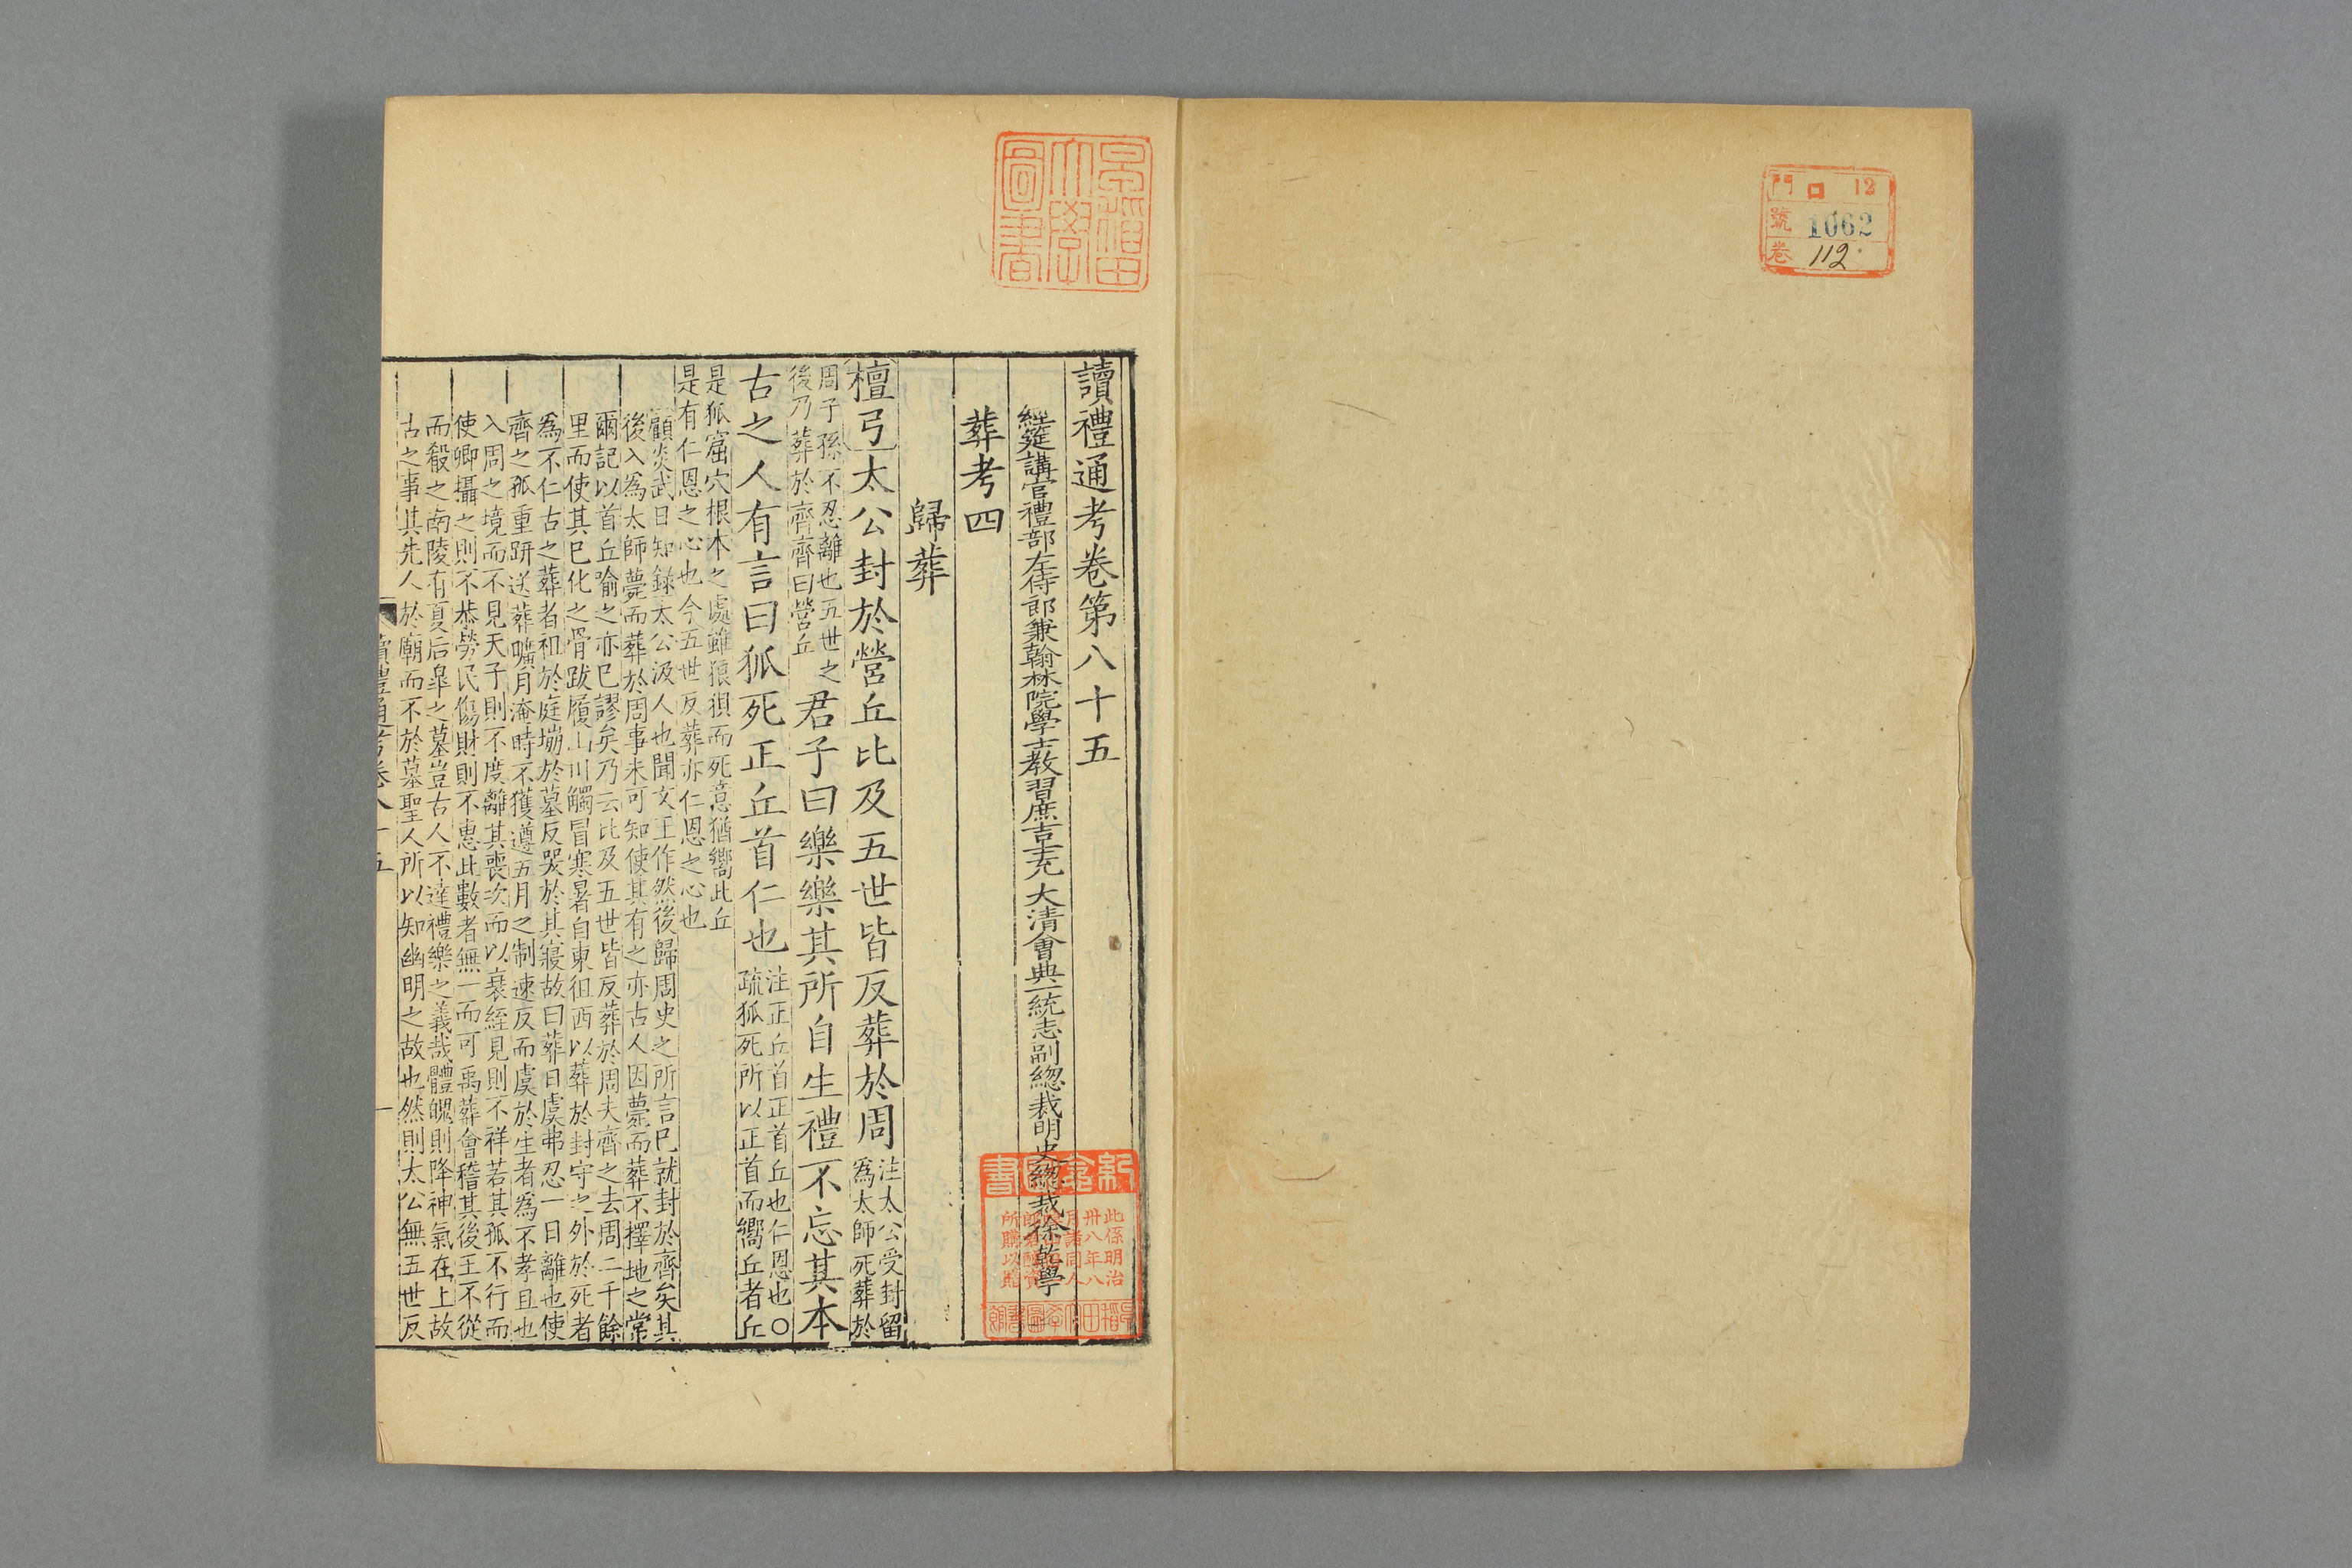 門 口 12
號 1062
卷 112
早稲田
大學
圖書
讀禮通考卷第八十五
經筵講官禮部左侍郎兼翰林院學士教習庶吉士充大清會典一統志副總裁明史總裁徐乾學
葬考四
歸葬
檀弓太公封於營丘比及五世皆反葬於周
注太公受封留
爲太師死葬於
周子孫不忍離也五世之
後乃葬於齊齊曰營丘
君子曰樂樂其所自生禮不忘其本
古之人有言曰狐死正丘首仁也
注正丘首正首丘也仁恩也○
疏狐死所以正首而嚮丘者丘
是狐窟穴根本之處雖狼狽而死意猶嚮此丘
是有仁恩之心也今五世反葬亦仁恩之心也
顧炎武日知錄太公汲人也聞文王作然後歸周史之所言已就封於齊矣其
後入爲太師薨而葬於周事未可知使其有之亦古人因薨而葬不擇地之常
爾記以首丘喻之亦已謬矣乃云比及五世皆反葬於周夫齊之去周二千餘
里而使其已化之骨跋履山川觸冒寒暑自東徂西以葬於封守之外於死者
爲不仁古之葬者祖於庭塴於墓反哭於其寢故曰葬日虞弗忍一日離也使
齊之孤重趼送葬曠月淹時不獲遵五月之制速反而虞於生者爲不孝且也
入周之境而不見天子則不度離其喪次而以衰絰見則不祥若其孤不行而
使卿攝之則不恭勞民傷財則不惠此數者無一而可禹葬會稽其後王不從
而殽之南陵有夏后皐之墓豈古人不達禮樂之義哉體魄則降神氣在上故
古之事其先人於廟而不於墓聖人所以知幽明之故也然則太公無五世反
讀禮通考卷八十五
一
此係明治
卅八年八